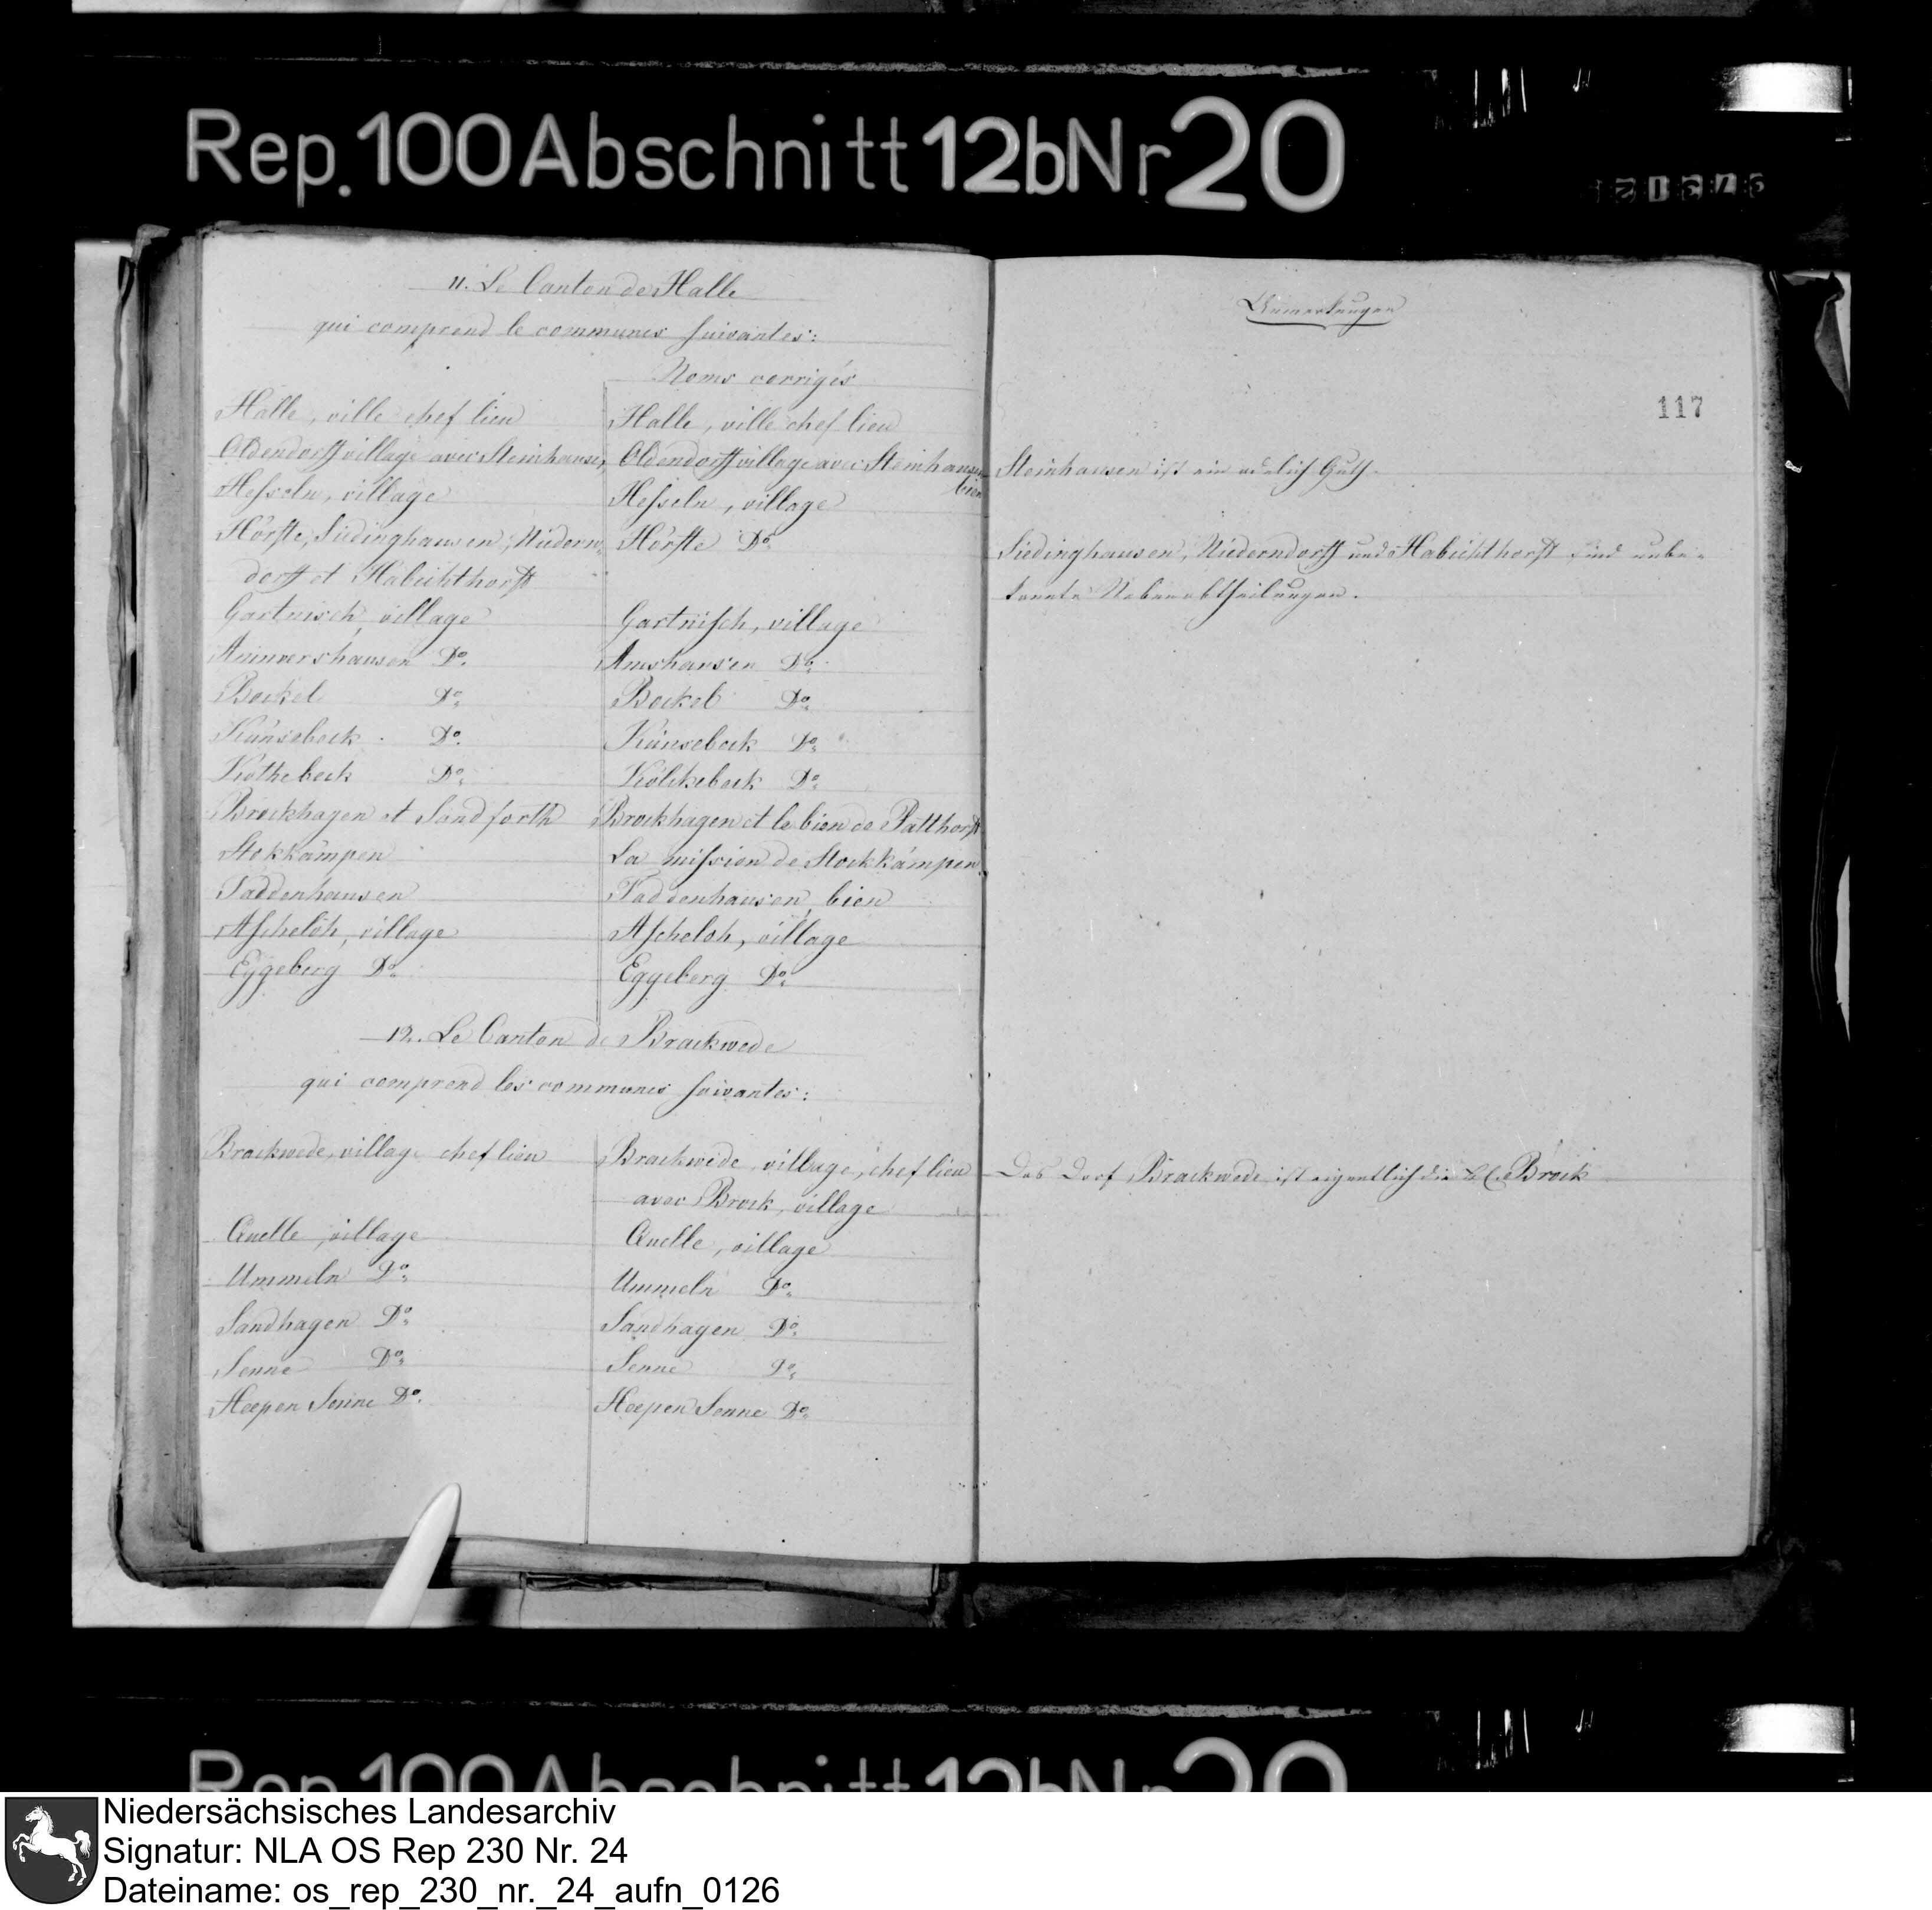 Rep. 100 Abschnitt 12b Nr 20
11. Le Canton de Halle
qui comprend le communes suivantes:
Noms corrigés
Halle, ville chef lieu
Oldendorff village avec Steinhausen
Hesseln, village
Hörste, Siedinghausen, Niedern
dorff et Habichthorst
Gartnisch, village
Ammershausen Do.
Bockel Do.
Künsebeck Do.
Kothebeck Do.
Brockhagen et Sandforth
Stokkämpen
Taddenhausen
Ascheloh, village
Eggeberg Do.
Halle, ville chef lieu
Oldendorff village avec Steinhausen
bien
Hesseln, village
Hörste Do.
Gartnisch, village
Amshausen Do.
Bockel Do.
Künsebeck Do.
Kölckebeck Do.
Brockhagen et le bien de Patthorst
La mission de Stockkämpen
Taddenhausen, bien
Ascheloh, village
Eggeberg Do.
12. Le Canton de Brackwede
qui comprend les communes suivantes:
Brackwede, village chef lieu
Quelle, village
Ummeln Do.
Sandhagen Do.
Senne Do.
Heepen Senne Do.
Brackwede, village, chef lieu
avec Brock, village
Quelle, village
Ummeln Do.
Sandhagen Do.
Senne Do.
Heepen Senne Do.
Anmerkungen
117
Steinhausen ist ein adelich Guth.
Siedinghausen, Niederndorff und Habichthorst sind unbe-
kannte Nebenabtheilungen.
Das Dorf Brackwede ist eigentlich die Brock
Niedersächsisches Landesarchiv
Signatur: NLA OS Rep 230 Nr. 24
Dateiname: os_rep_230_nr._24_aufn_0126